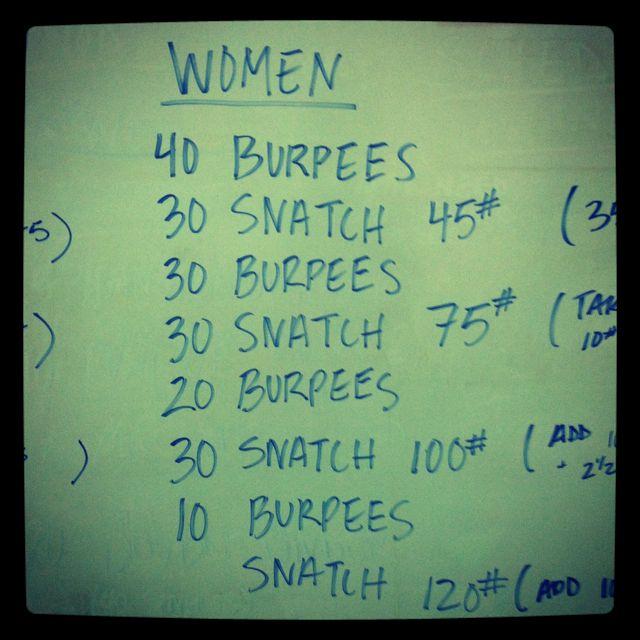 WOMEN
40 BURPEES
30 SNATCH 45# (35
30 BURPEES
30 SNATCH 75# (TAK
10#
20 BURPEES
30 SNATCH 100# (ADD 1
+ 2½
10 BURPEES
SNATCH 120# (ADD 10
5)
)
)